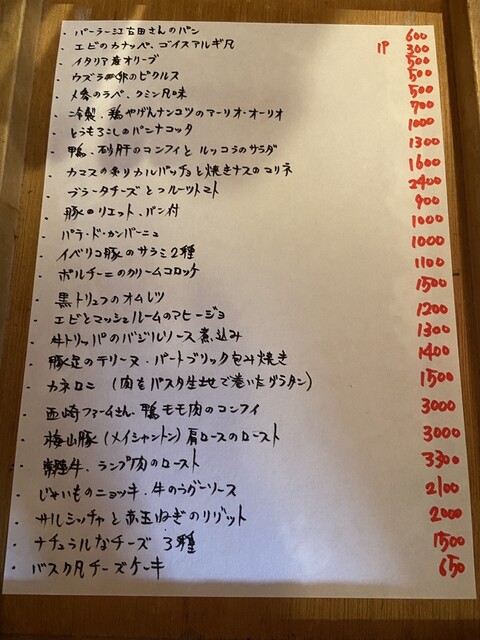 ・パーラー江古田さんのパン 600
・エビのカナッペ、ゴイスアルギ風 1P 300
・イタリア産オリーブ 500
・ウズラ卵のピクルス 500
・人参のラペ、クミン風味 500
・冷製、鶏やげんナンコツのアーリオ・オーリオ 700
・とうもろこしのパンナコッタ 1000
・鴨、砂肝のコンフィとルッコラのサラダ 1300
・カマスの炙りカルパッチョと焼きナスのコリネ 1600
・ブラータチーズとフルーツトマト 2400
・豚のリエット、パン付 900
・パテ・ド・カンパーニュ 1000
・イベリコ豚のサラミ2種 1000
・ポルチーニのクリームコロッケ 1100
・黒トリュフのオムレツ 1500
・エビとマッシュルームのアヒージョ 1200
・牛トリッパのバジルソース煮込み 1300
・豚足のテリーヌ・パートブリック包み焼き 1400
・カネロニ (肉をパスタ生地で巻いたグラタン) 1500
・西崎ファームさん、鴨モモ肉のコンフィ 3000
・梅山豚(メイシャントン)肩ロースのロースト 3000
・常陸牛、ランプ肉のロースト 3300
・じゃいものニョッキ・牛のラグーソース 2100
・サルシッチャと赤玉ねぎのリゾット 2000
・ナチュラルなチーズ 3種 1500
・バスク風チーズケーキ 650